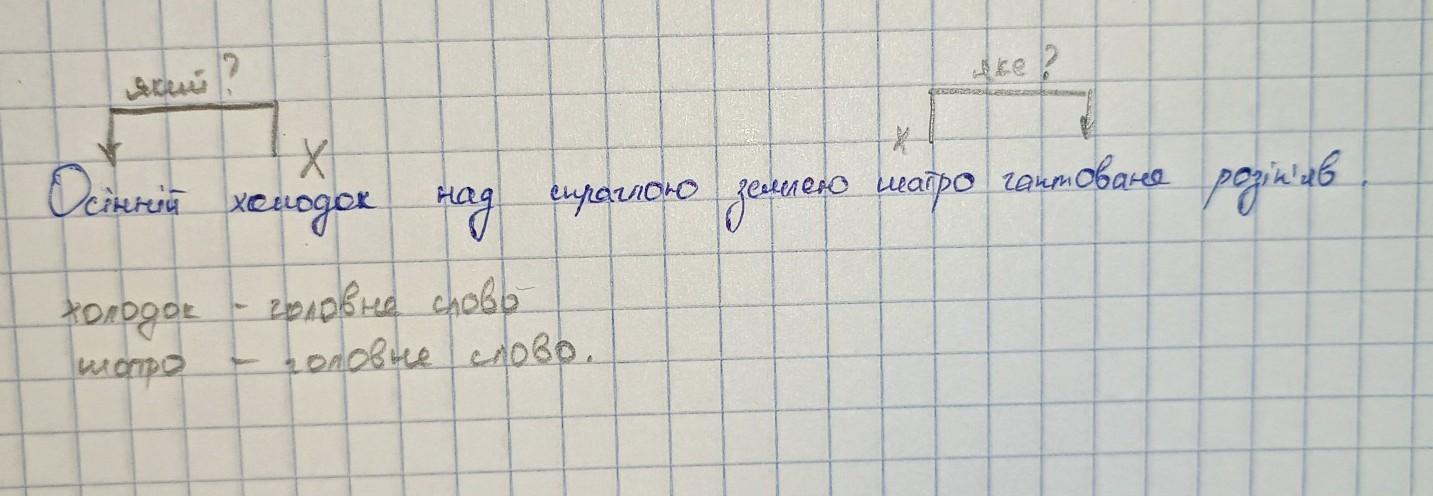 який? яке?
х х
Осінній холодок над спраглою землею шатро гаптоване розіп'яв.
холодок - головне слово
шатро - головне слово.